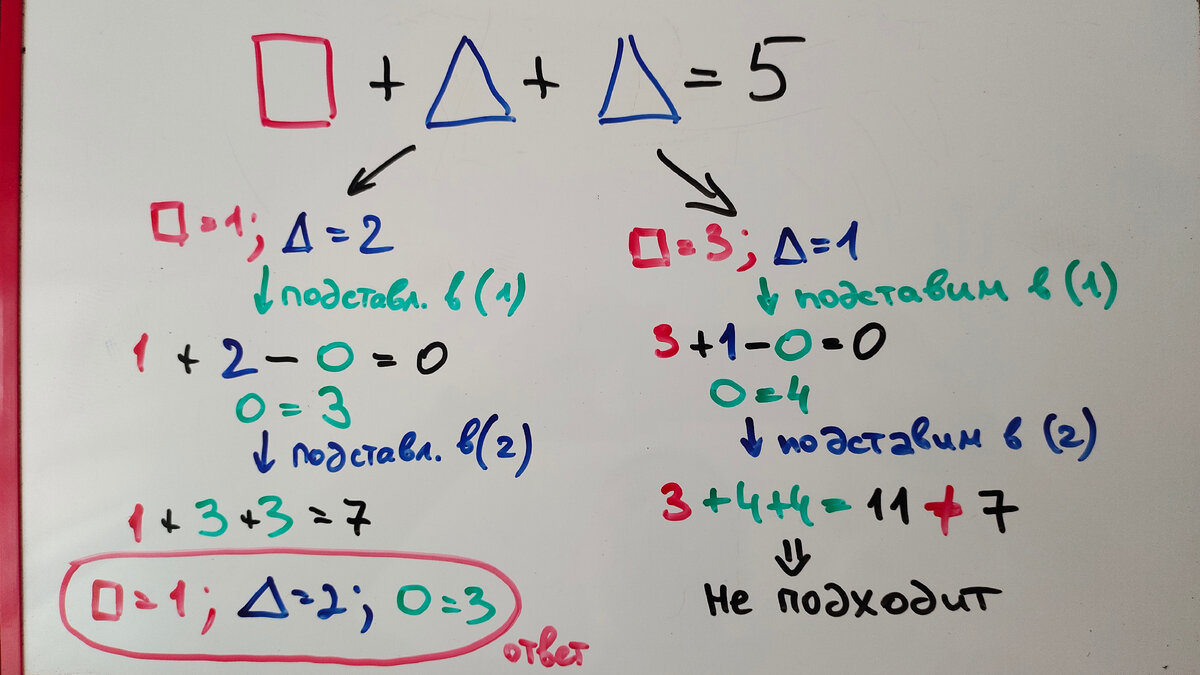 □ + △ + △ = 5
□ = 1; △ = 2
↓ подставл. в (1)
1 + 2 − O = 0
O = 3
↓ подставл. в (2)
1 + 3 + 3 = 7
□ = 1; △ = 2; O = 3
ответ
□ = 3; △ = 1
↓ подставим в (1)
3 + 1 − O = 0
O = 4
↓ подставим в (2)
3 + 4 + 4 = 11 ≠ 7
⇓
Не подходит